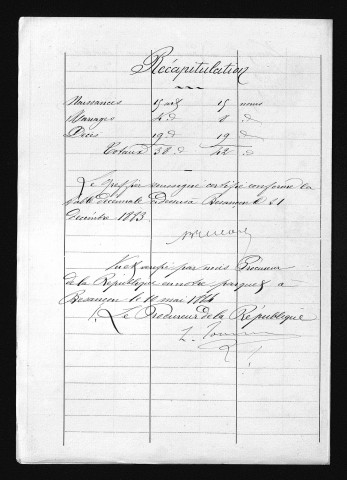 Récapitulation
Naissances 15 act 15 noms
Mariages 4 d° 8 d°
Décès 19 d° 19 d°
Totaux 38 d° 42 d°
Le greffier soussigné certifie conforme la
table décennale ci-dessus Besançon le 31
décembre 1873
Vu et vérifié par nous Procureur
de la République en notre parquet à
Besançon le 10 mai 1874
Le Procureur de la République